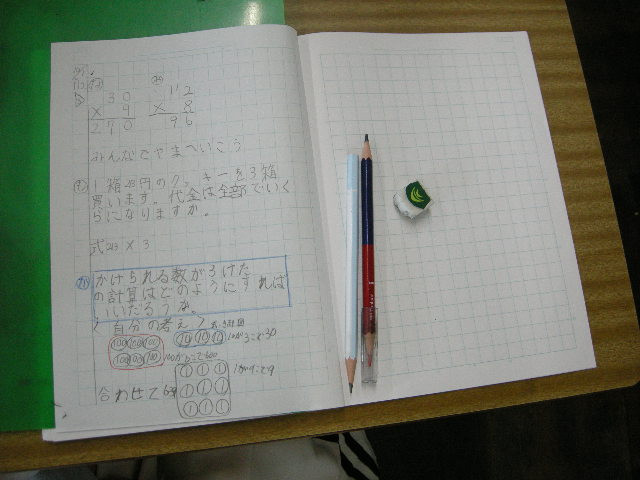 30 12
× 9 × 8
270 96
みんなでやまへいこう
1箱213円のクッキーを3箱
買います。代金は全部でいく
らになりますか。
式213×3
かけられる数が3けた
の計算はどのようにすれば
いいだろうか。
自分の考え
100 100 100 10 10 10 10が3こで30
100 100 100 100が6こで600
1 1 1 1が9こで9
1 1 1
合わせて639
1 1 1